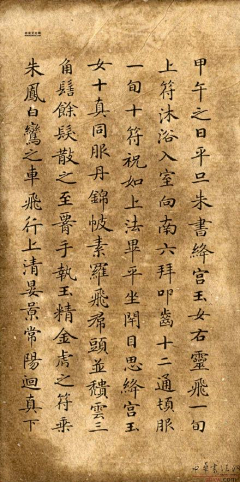 甲午之日平旦朱書絳宮玉女右靈飛一旬
上符沐浴入室向南六拜叩齒十二通頓服
一旬十符祝如上法畢平坐閉目思絳宮玉
女十真同服丹錦帔素羅飛帬頭並穨雲三
角髻餘髮散之至腰手執玉精金虎之符乘
朱鳳白鸞之車飛行上清晏景常陽迴真下